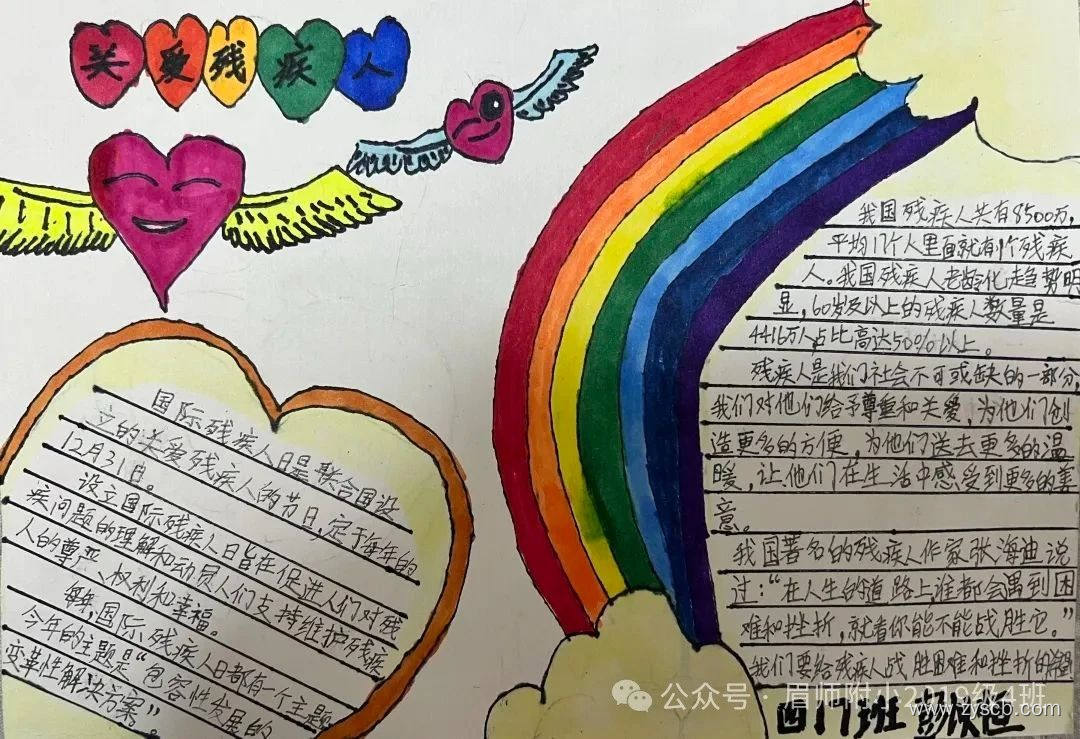 关爱残疾人
国际残疾人日是联合国设
立的关爱残疾人的节日,定于每年的
12月31日。
设立国际残疾人日旨在促进人们对残
疾问题的理解和动员人们支持维护残疾
人的尊严、权利和幸福。
每年,国际残疾人日都有一个主题
今年的主题是“包容性发展的
变革性解决方案”
我国残疾人共有8500万,
平均17个人里面就有1个残疾
人。我国残疾人老龄化趋势明
显,60岁及以上的残疾人数量是
4416万人占比高达50%以上。
残疾人是我们社会不可或缺的一部分,
我们对他们给予尊重和关爱,为他们创
造更多的方便,为他们送去更多的温
暖,让他们在生活中感受到更多的善
意。
我国著名的残疾人作家张海迪说
过:“在人生的道路上,谁都会遇到困
难和挫折,就看你能不能战胜它。”
我们要给残疾人战胜困难和挫折的
公众号·眉师附小2019级4班
www.zyscb.com
四门班